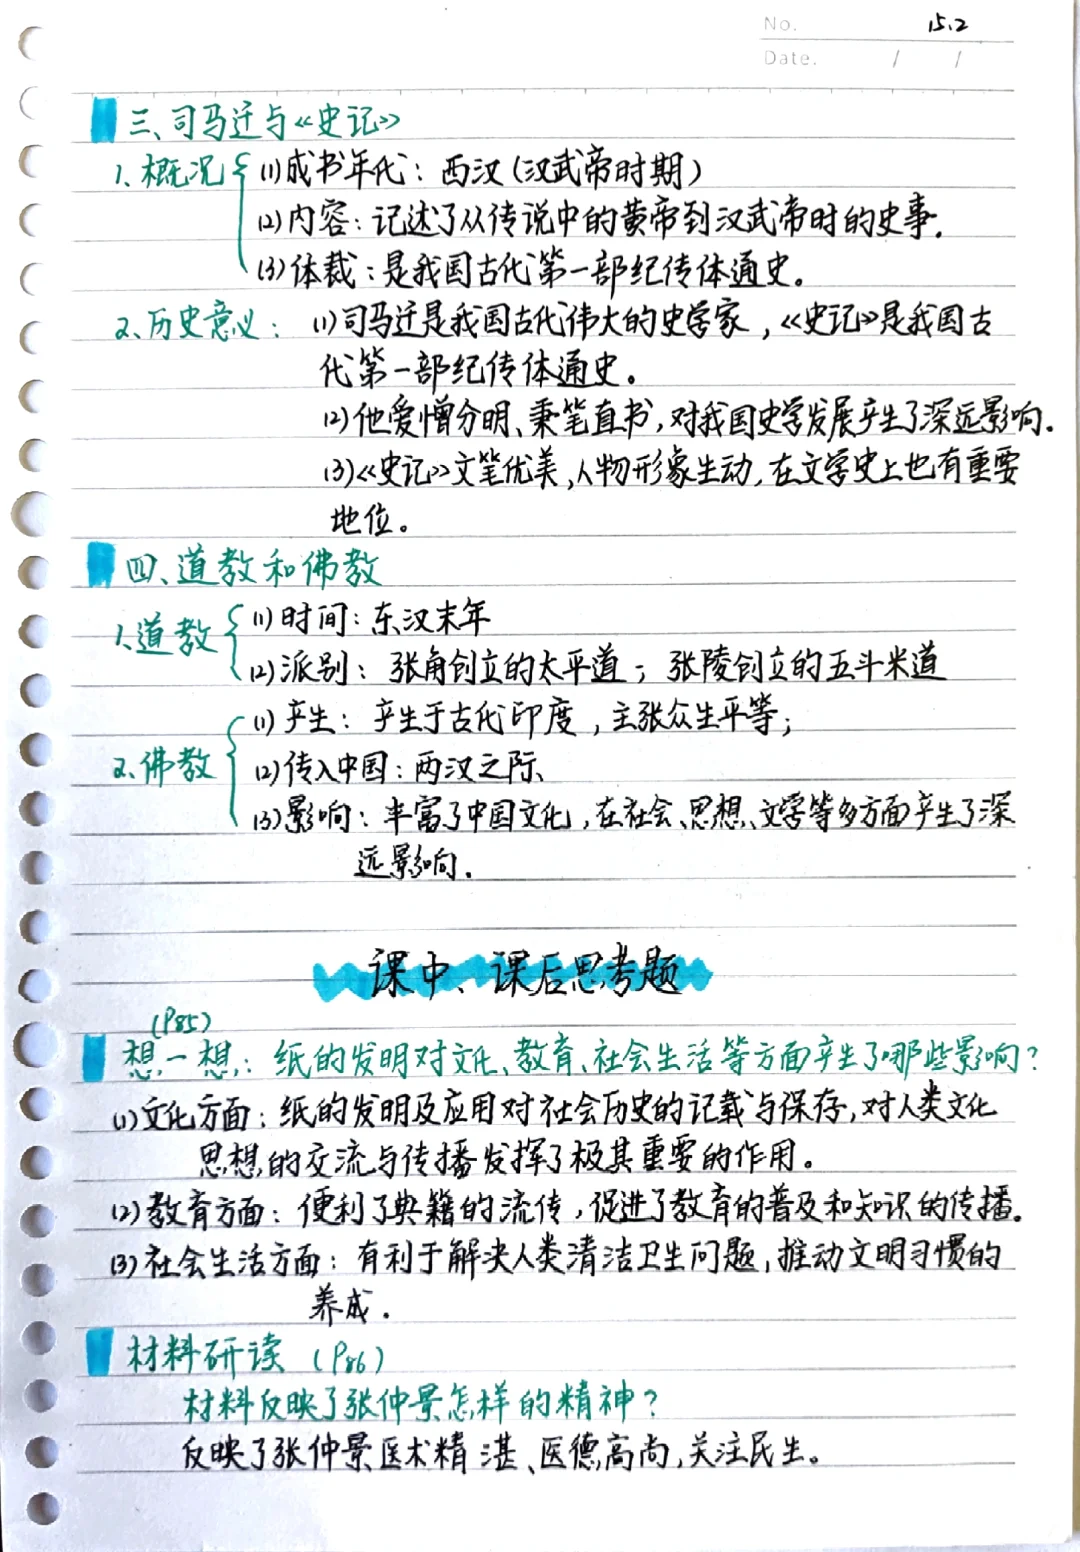 No. 15.2
Date. / /
三、司马迁与《史记》
1、概况 (1)成书年代：西汉（汉武帝时期）
(2)内容：记述了从传说中的黄帝到汉武帝时的史事.
(3)体裁：是我国古代第一部纪传体通史。
2、历史意义： (1)司马迁是我国古代伟大的史学家，《史记》是我国古
代第一部纪传体通史。
(2)他爱憎分明、秉笔直书，对我国史学发展产生了深远影响.
(3)《史记》文笔优美,人物形象生动,在文学史上也有重要
地位。
四、道教和佛教
1、道教 (1)时间：东汉末年
(2)派别：张角创立的太平道；张陵创立的五斗米道
(1)产生：产生于古代印度，主张众生平等；
2、佛教 (2)传入中国：两汉之际、
(3)影响：丰富了中国文化，在社会、思想、文学等多方面产生了深
远影响.
课中、课后思考题
(P85)
想一想：纸的发明对文化、教育、社会生活等方面产生了哪些影响？
(1)文化方面：纸的发明及应用对社会历史的记载与保存,对人类文化
思想的交流与传播发挥了极其重要的作用。
(2)教育方面：便利了典籍的流传，促进了教育的普及和知识的传播。
(3)社会生活方面：有利于解决人类清洁卫生问题,推动文明习惯的
养成.
材料研读（P86）
材料反映了张仲景怎样的精神？
反映了张仲景医术精湛、医德高尚,关注民生。